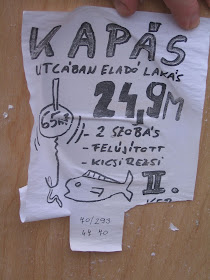 KAPÁS
UTCÁBAN ELADÓ LAKÁS
24,9M
65m²
- 2 SZOBÁS
- FELÚJÍTOTT
- KICSI REZSI
II.
KER
70/293
44 70